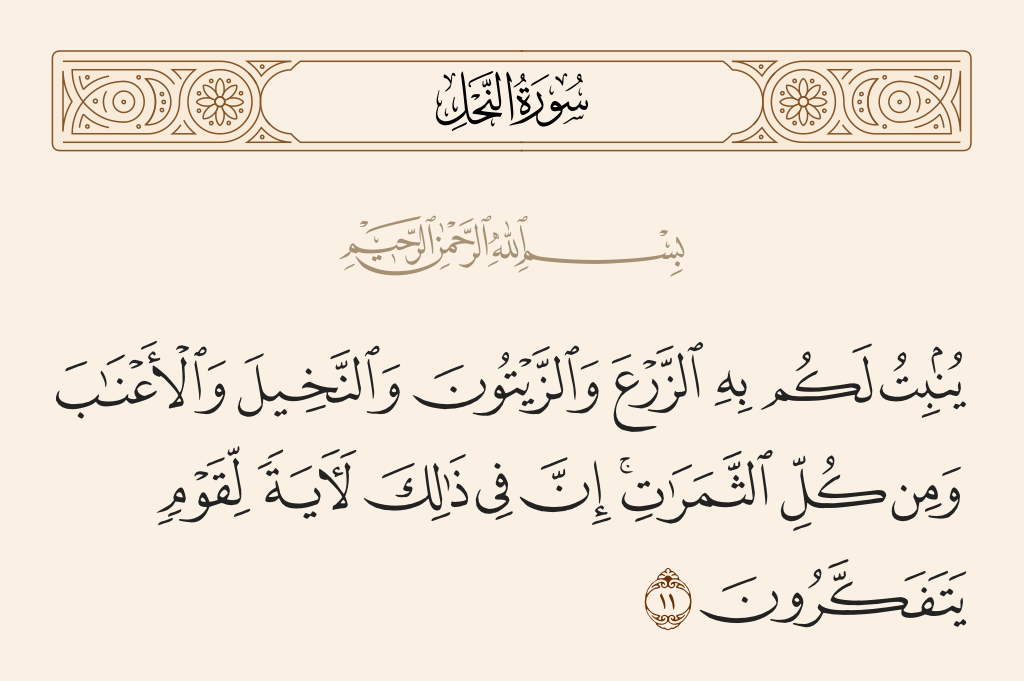 سُورَةُ النَّحْلِ
بِسْمِ ٱللَّهِ ٱلرَّحْمَٰنِ ٱلرَّحِيمِ
يُنۢبِتُ لَكُم بِهِ ٱلزَّرْعَ وَٱلزَّيْتُونَ وَٱلنَّخِيلَ وَٱلْأَعْنَٰبَ
وَمِن كُلِّ ٱلثَّمَرَٰتِ ۚ إِنَّ فِى ذَٰلِكَ لَـَٔايَةً لِّقَوْمٍ
يَتَفَكَّرُونَ ١١